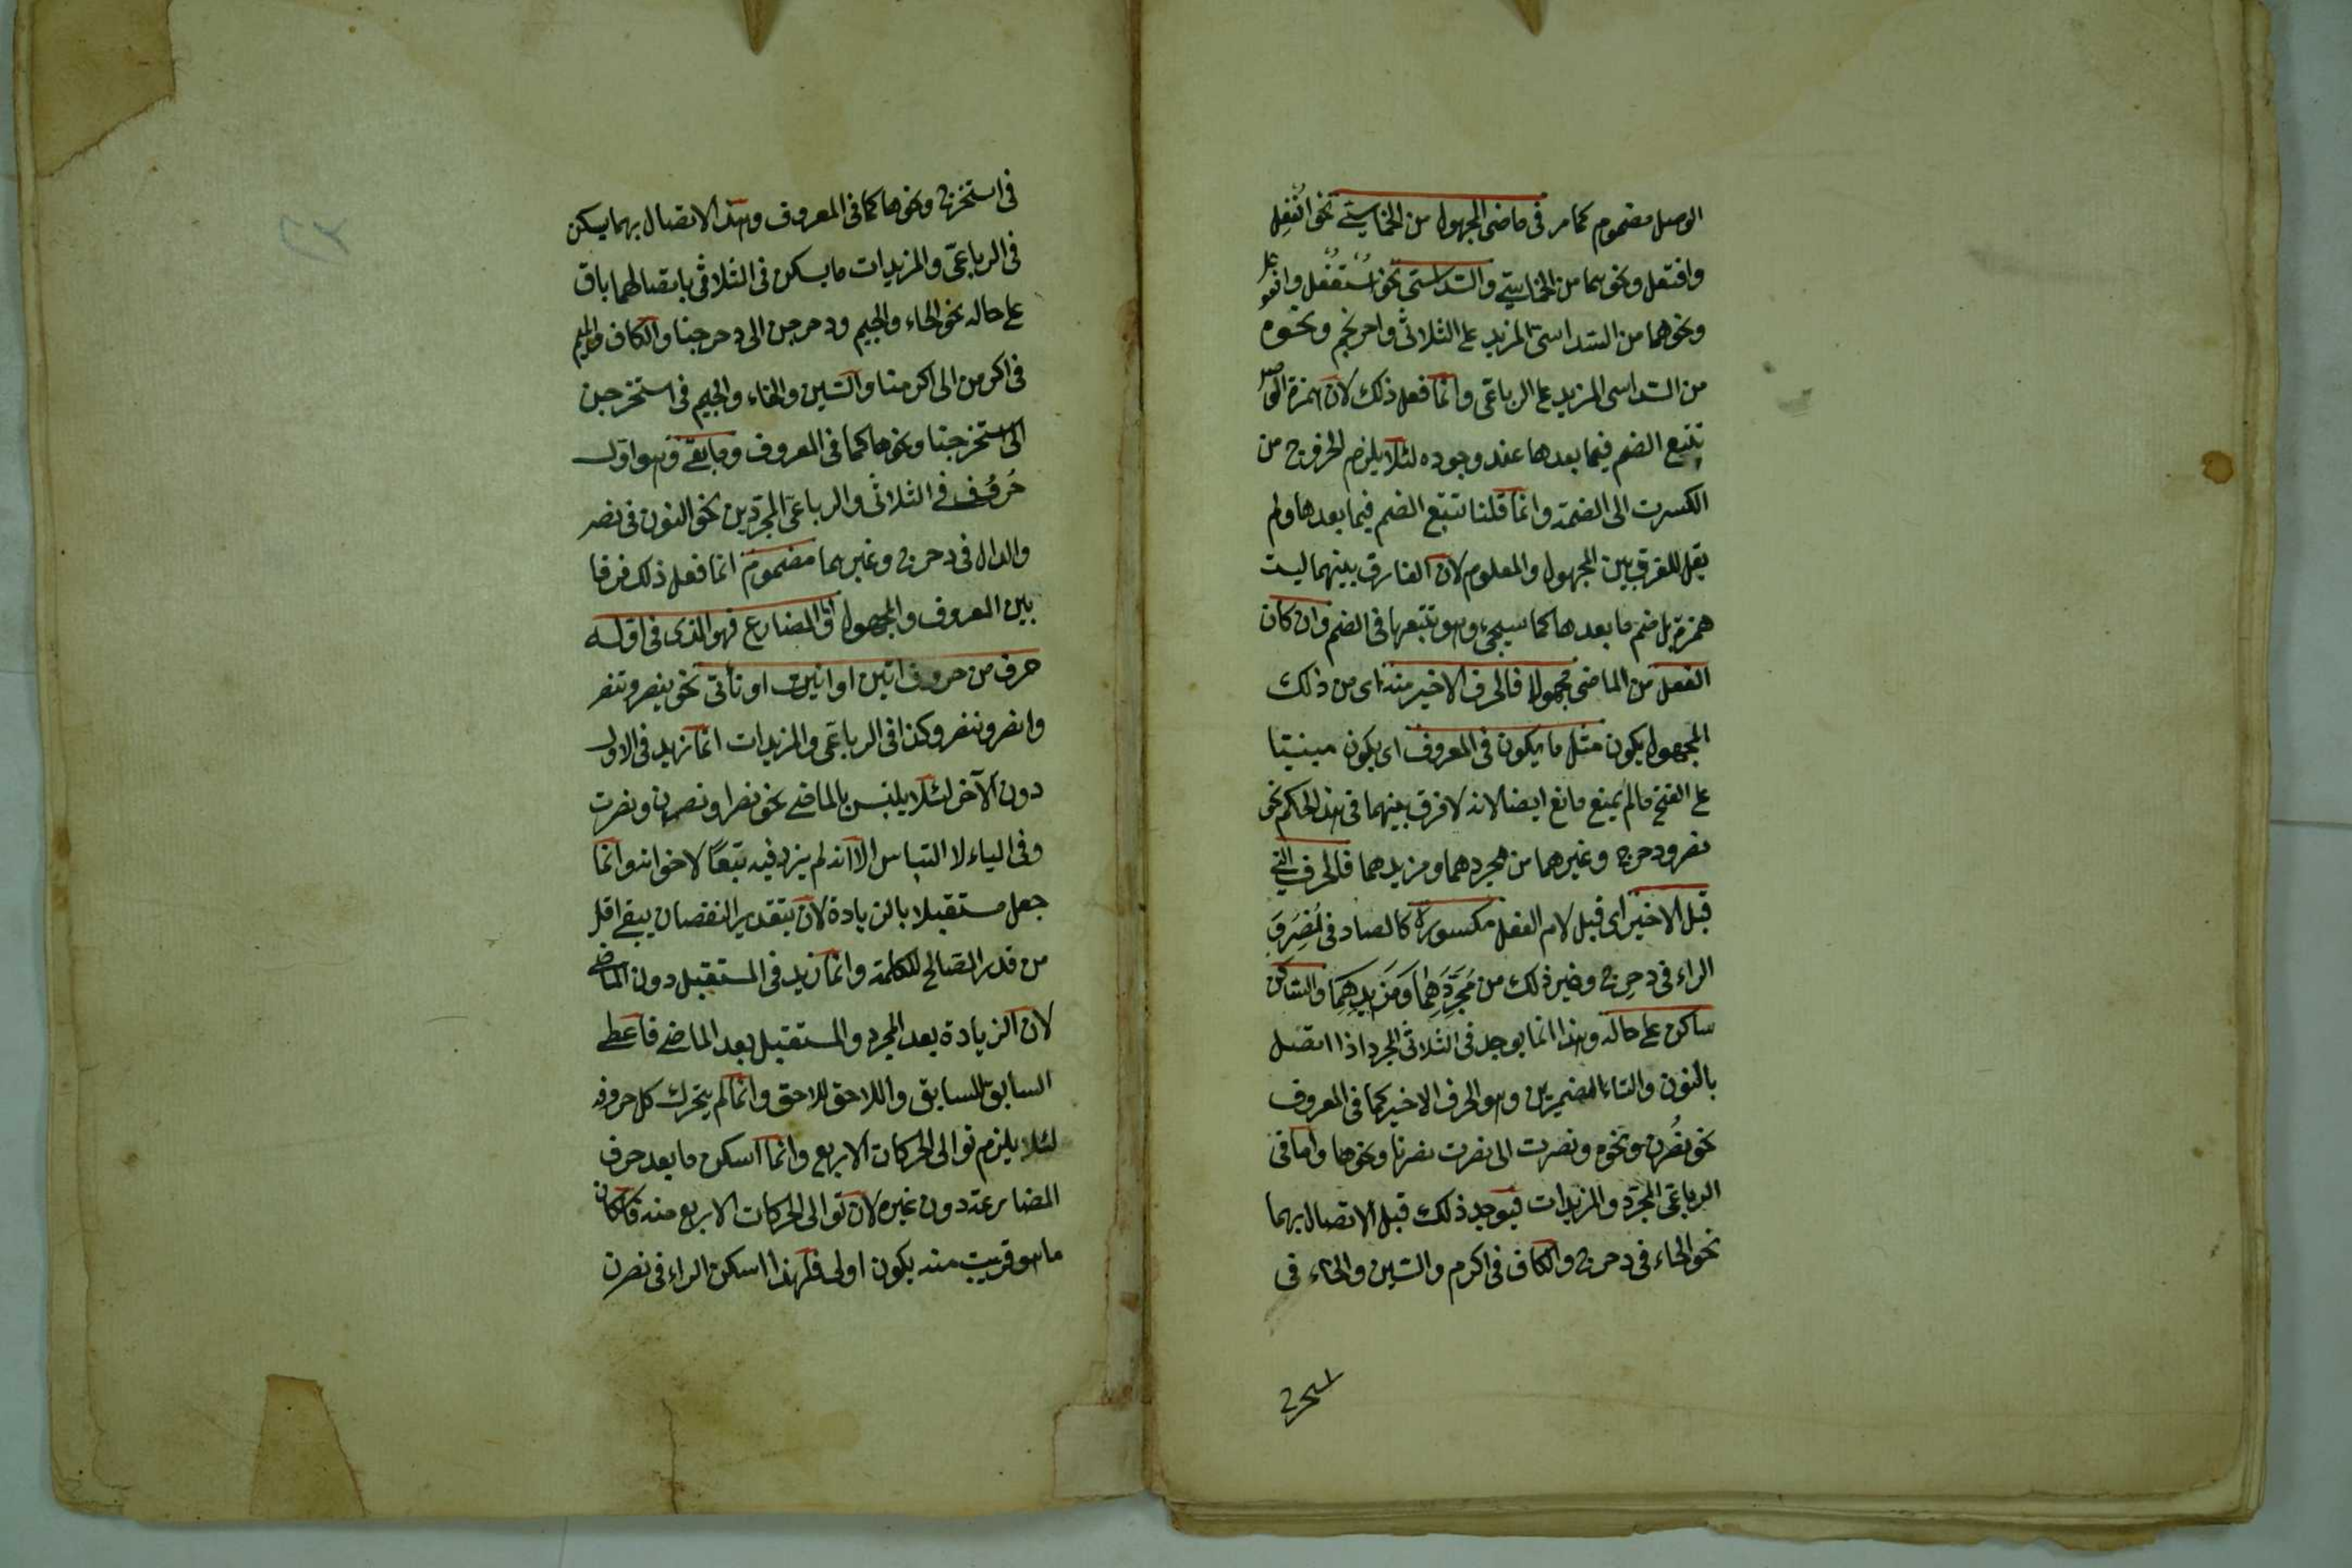 الوصل مضموم كما مر فى ماضى المجهول من الخماسيّ نحو انفعل
وافتعل ونحوهما من الخماسيّ والسداسى نحو استفعل وافعوعل
ونحوهما من السداسى المزيد على الثلاثى واحرنجم ونحوه
من السداسى المزيد على الرباعى وانما فعل ذلك لان همزة الوصل
تتبع الضم فيما بعدها عند وجوده لئلا يلزم الخروج من
الكسرت الى الضمة وانما قلنا تتبع الضم فيما بعدها ولم
يقل للفرق بين المجهول والمعلوم لان الفارق بينهما ليست
همزة بل ضم ما بعدها كما سيجئ وهو تتبعها فى الضم وان كان
الفعل من الماضى مجهولا فالحرف الاخير منه اى من ذلك
المجهول يكون مثل ما يكون فى المعروف اى يكون مبنيا
على الفتح مالم يمنع مانع ايضا لانه لا فرق بينهما فى هذا الحكم نحو
نصر ودحرج وغيرهما من مجردهما ومزيدهما فالحرف التى
قبل الاخير اى قبل لام الفعل مكسورة كالصاد فى نُصِرَ وَ
الراء فى دحرج وغير ذلك من مُجَرَّدِهِمَا وَمَزِيدِهِمَا والساكن
ساكن على حاله وهذا انما يوجد فى الثلاثى المجرد اذا اتصل
بالنون والتاء المضمرتين وهو الحرف الاخير كما فى المعروف
نحو نُصرن ونحوه ونصرت الى نصرت نصرنا ونحوها واما فى
الرباعى المجرّد والمزيدات فيوجد ذلك قبل الاتصال بهما
نحو الحاء فى دحرج والكاف فى اكرم والسين والخاء فى
فى استخرج ونحوها كما فى المعروف وهذا الاتصال بهما يسكن
فى الرباعى والمزيدات ما يسكن فى الثلاثى باتصالهما باق
على حاله نحو الحاء والجيم ودحرجن الى دحرجنا والكاف والميم
فى اكرمن الى اكرمنا والسين والخاء والجيم فى استخرجن
الى استخرجنا ونحوها كما فى المعروف وما بقى وهو اول
حُرُف فى الثلاثى والرباعى المجرّدين نحو النون فى نصر
والدال فى دحرج وغيرهما مضموم انما فعل ذلك فرقا
بين المعروف والمجهول اما المضارع فهو الذى فى اوله
حرف من حروف اتين او انيت او نأتى نحو ينصر وتنصر
وانصر وننصر وكذا فى الرباعى والمزيدات انما زيد فى الاول
دون الآخر لئلا يلتبس بالماضى نحو نصرا ونصرن ونصرت
وفى الياء لا التباس الا انه لم يزد فيه تبعًا لاخواته وانما
جعل مستقبلا بالزيادة لان بتقدير النقصان يبقى اقل
من قدر الصالح للكلمة وانما زيد فى المستقبل دون الماضى
لان الزيادة بعد المجرد والمستقبل بعد الماضى فاعطى
السابق للسابق واللاحق للاحق وانما لم يتحرك كل حروفه
لئلا يلزم توالى الحركات الاربع وانما اسكن ما بعد حرف
المضارعة دون غيره لان توالى الحركات الاربع منه فكان
ما هو قريب منه يكون اولى فلهذا اسكن الراء فى نصرن